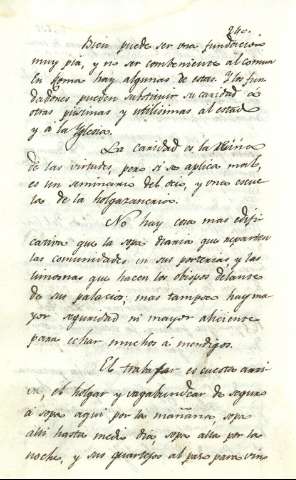 240.
Bien puede ser una fundacion
muy pia, y no ser combeniente al comun
En Roma hay algunas de estas. Y los fun-
dadores pueden substituir su caridad á
otras piisimas y utilisimas al estado
y á la Yglesia.
La caridad es la Reina
de las virtudes, pero si se aplica mal,
es un seminario del ocio, y una escue
la de la holgazaneria.
No hay cosa mas edifi
cativa que la sopa diaria que reparten
las comunidades en sus porterias y las
limosnas que hacen los obispos delante
de sus palacios; mas tampoco hay ma
yor seguridad ni mayor aliciente
para echar muchos á mendigos.
El trabajar es cuesta arri
va, el holgar y vagabundear de seguro
á sopa aqui por la mañana, sopa
alli hasta medio dia, sopa alla por la
noche, y sus quartejos al paso para vino